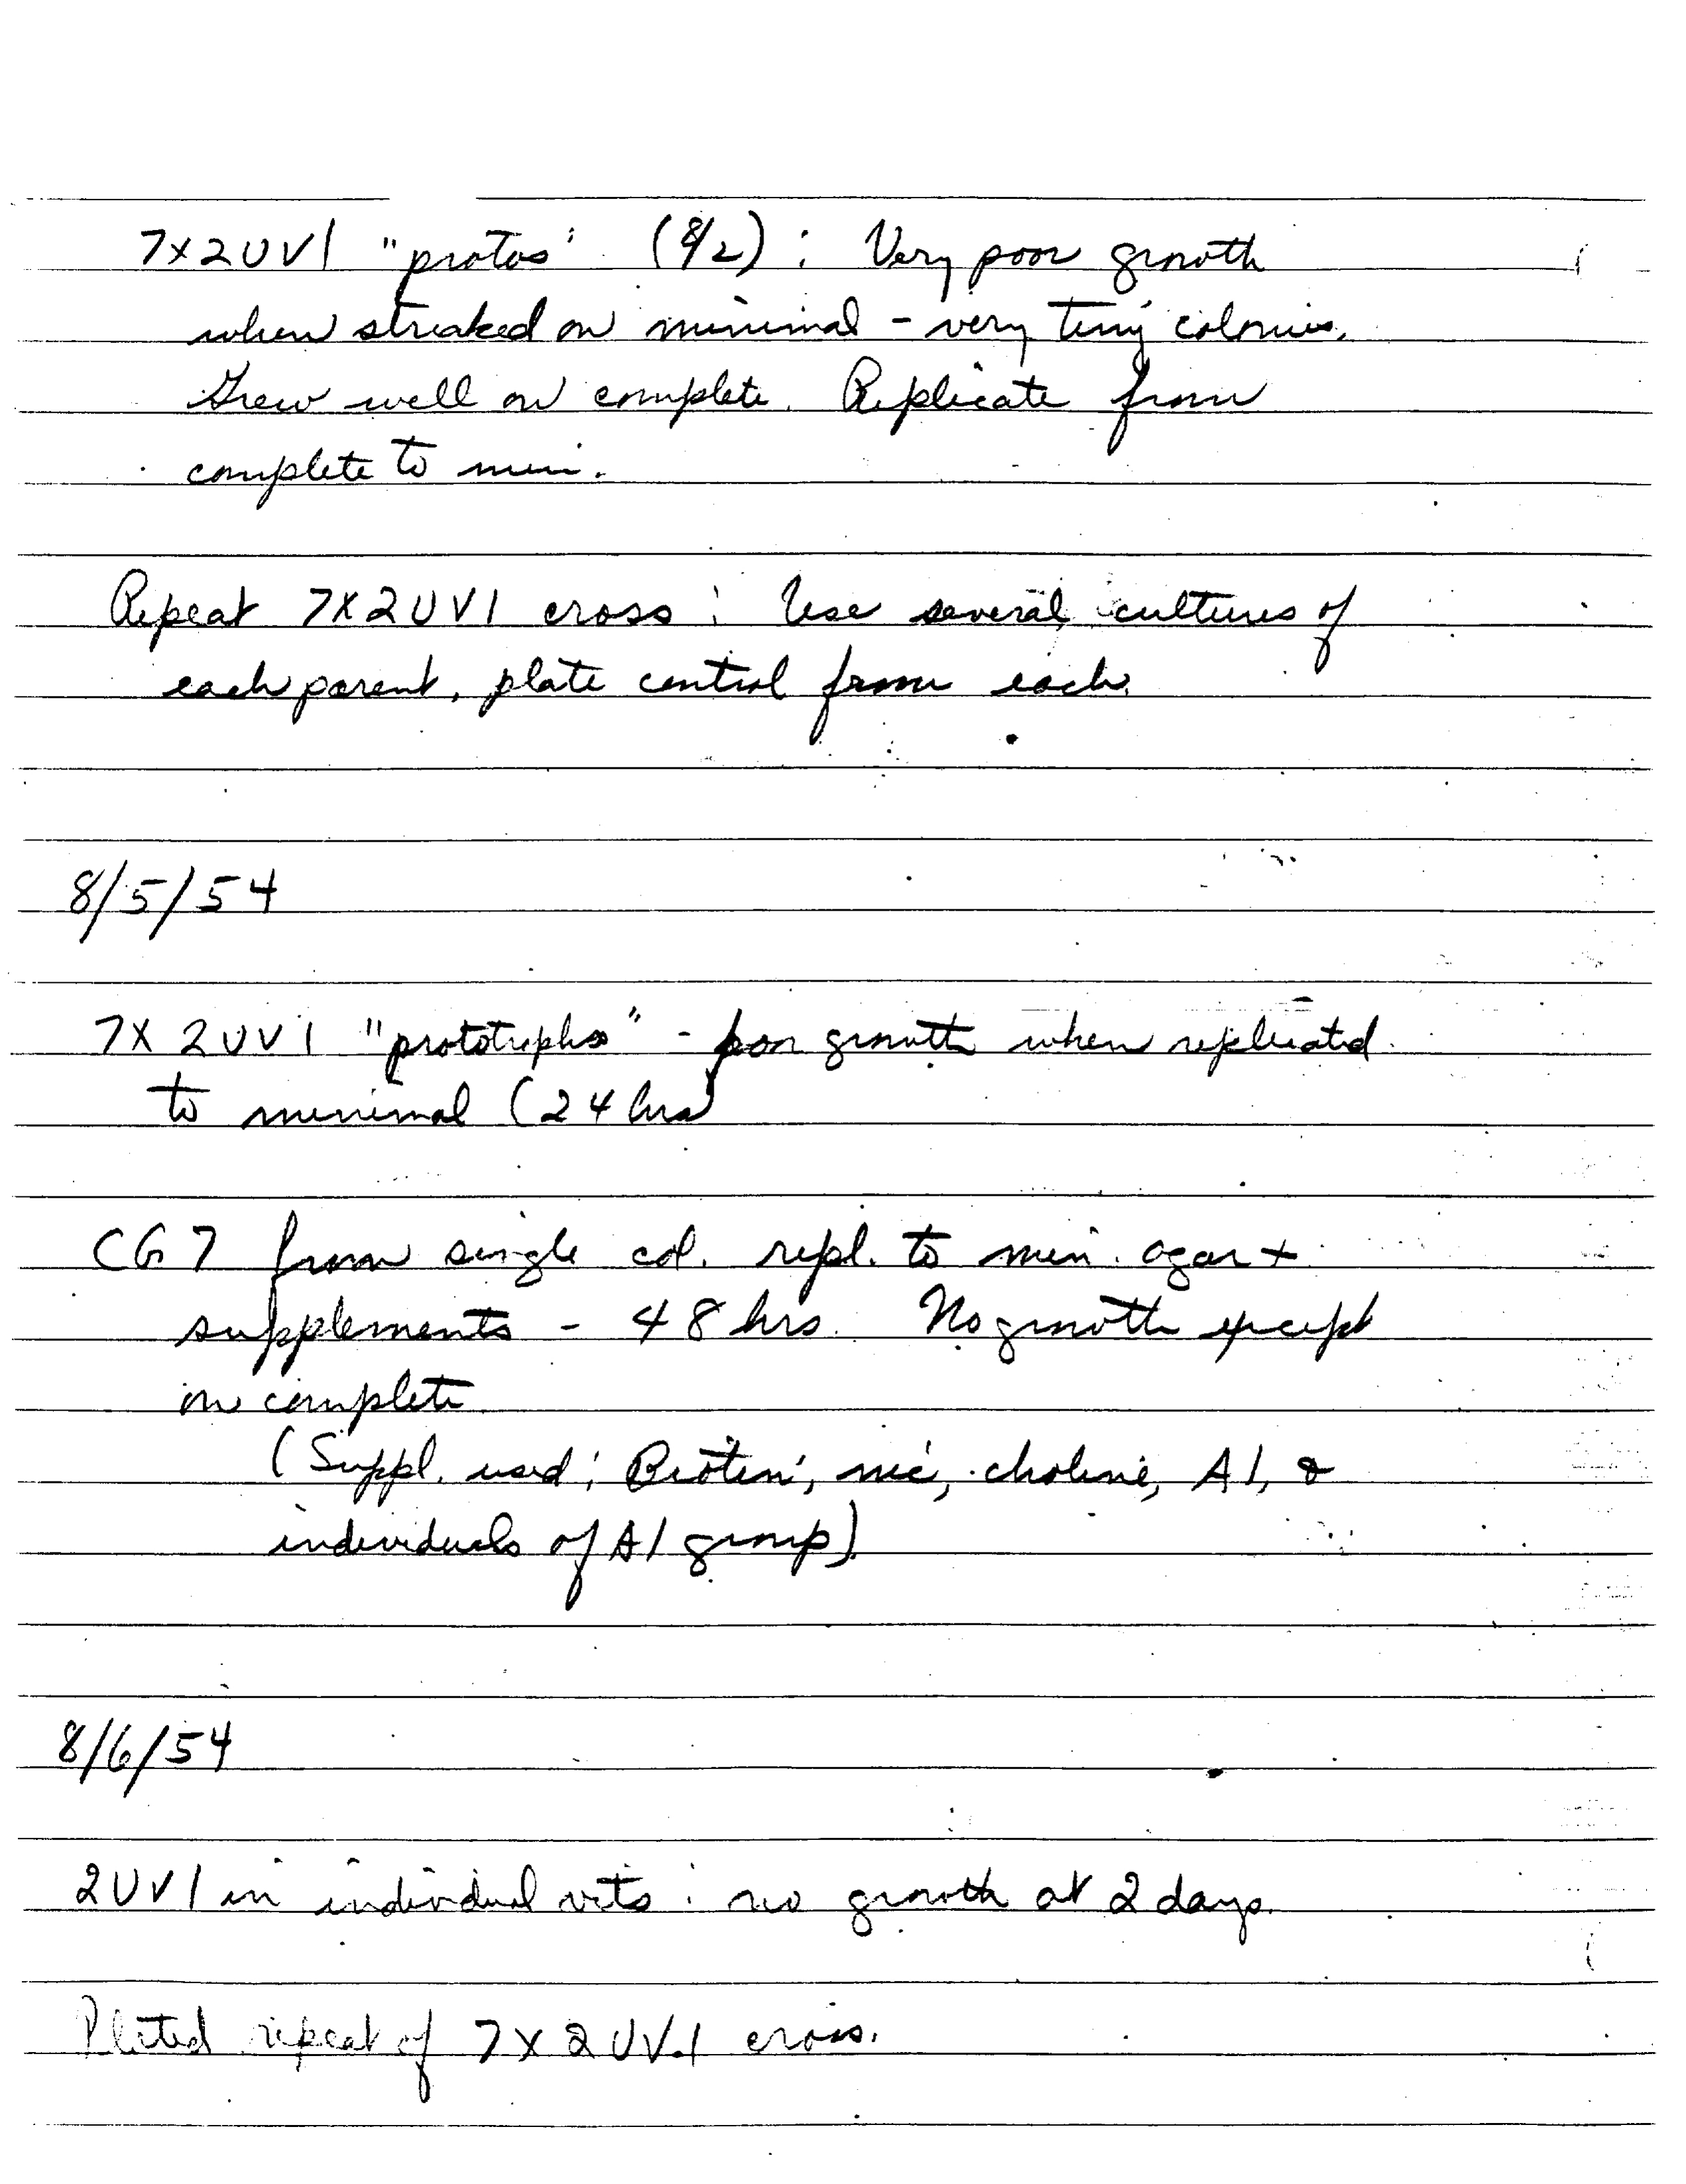 7X2UV1 "protos" (8/2) : Very poor growth
when streaked on minimal - very tiny colonies.
Grew well on complete. Replicate from
complete to min.
Repeat 7X2UV1 cross : Use several cultures of
each parent, plate control from each.
8/5/54
7X 2UV1 "prototrophs" - poor growth when replicated
to minimal (24 hrs)
CG7 from single col. repl. to min. agar +
supplements - 48 hrs. No growth except
on complete
(Suppl. used: Biotin, nic, choline, A1, &
individuals of A1 group).
8/6/54
2UV1 in individual vits : no growth at 2 days.
Plated repeat of 7X2UV1 cross.